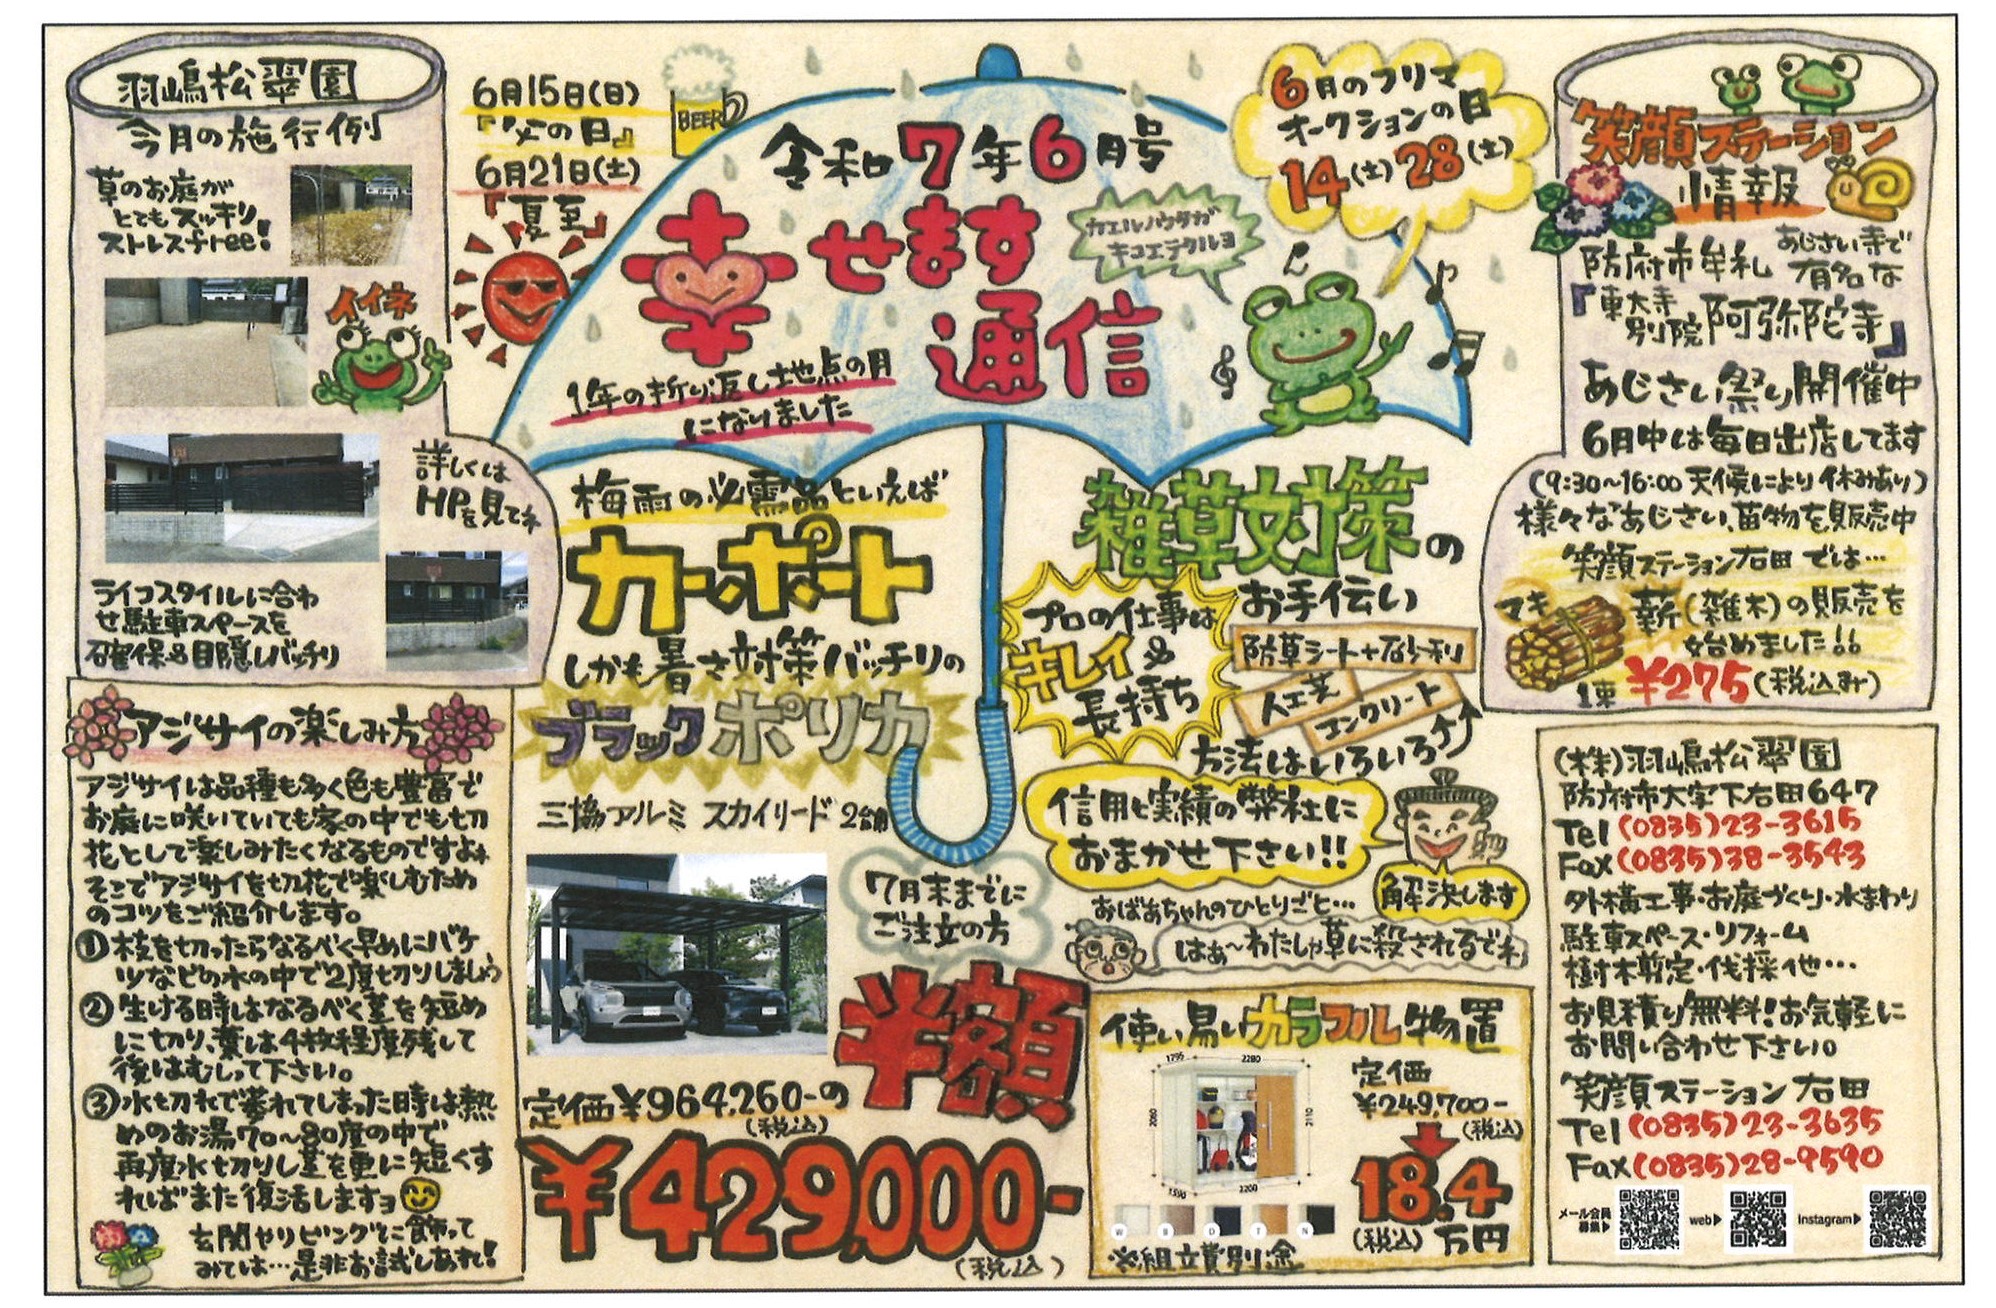 羽嶋松翠園
今月の施行例
草のお庭が
とてもスッキリ
ストレスfree!
イイネ
詳しくは
HPを見てネ
ライフスタイルに合わ
せ駐車スペースを
確保&目隠しバッチリ
6月15日(日)
『父の日』
6月21日(土)
『夏至』
BEER
令和7年6月号
幸せます
通信
1年の折り返し地点の月
になりました
カエルノウタガ
キコエテクルヨ
6月のフリマ
オークションの日
14(土)28(土)
笑顔ステーション
情報
防府市牟礼
あじさい寺で
有名な
『東大寺
別院阿弥陀寺』
あじさい祭り開催中
6月中は毎日出店してます
(9:30~16:00 天候により休みあり)
様々なあじさい、苗物を販売中
笑顔ステーション右田では…
マキ
薪(雑木)の販売を
始めました!!
1束 ¥275(税込み)
梅雨の必需品といえば
カーポート
しかも暑さ対策バッチリの
ブラックポリカ
三協アルミ スカイリード 2台用
7月末までに
ご注文の方
半額
定価¥964,260-の
(税込)
¥429,000-
(税込)
雑草対策の
お手伝い
プロの仕事は
キレイ&
長持ち
防草シート+砂利
人工芝
コンクリート
方法はいろいろ
信用と実績の弊社に
おまかせ下さい!!
解決します
おばあちゃんのひとりごと…
はぁ~わたしゃ草に殺されるでネ
使い易いカラフル物置
1795
2280
2060
2110
1590
2200
定価
¥249,700-
(税込)
18.4
(税込)万円
W
B
D
T
N
※組立費別途
アジサイの楽しみ方
アジサイは品種も多く色も豊富で
お庭に咲いていても家の中でも切
花として楽しみたくなるものですよネ
そこでアジサイを切花で楽しむため
のコツをご紹介します。
①枝を切ったらなるべく早めにバケ
ツなどの水の中で2度切りしましょう
②生ける時はなるべく茎を短め
に切り、葉は4枚程度残して
後はむしって下さい。
③水切れで萎れてしまった時は熱
めのお湯70~80度の中で
再度水切りし茎を更に短くす
ればまた復活しますヨ
玄関やリビングに飾って
みては…是非お試しあれ!
(株)羽嶋松翠園
防府市大字下右田647
Tel (0835)23-3615
Fax (0835)38-3543
外構工事・お庭づくり・水まわり
駐車スペース・リフォーム
樹木剪定・伐採 他…
お見積り無料!お気軽に
お問い合わせ下さい。
笑顔ステーション右田
Tel (0835)23-3635
Fax (0835)28-9590
メール会員
募集▶
web▶
Instagram▶